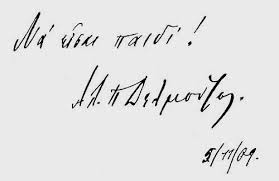 Νά εἶσαι παιδί!
Αλ. Π Δελμούζος.
5/11/09.